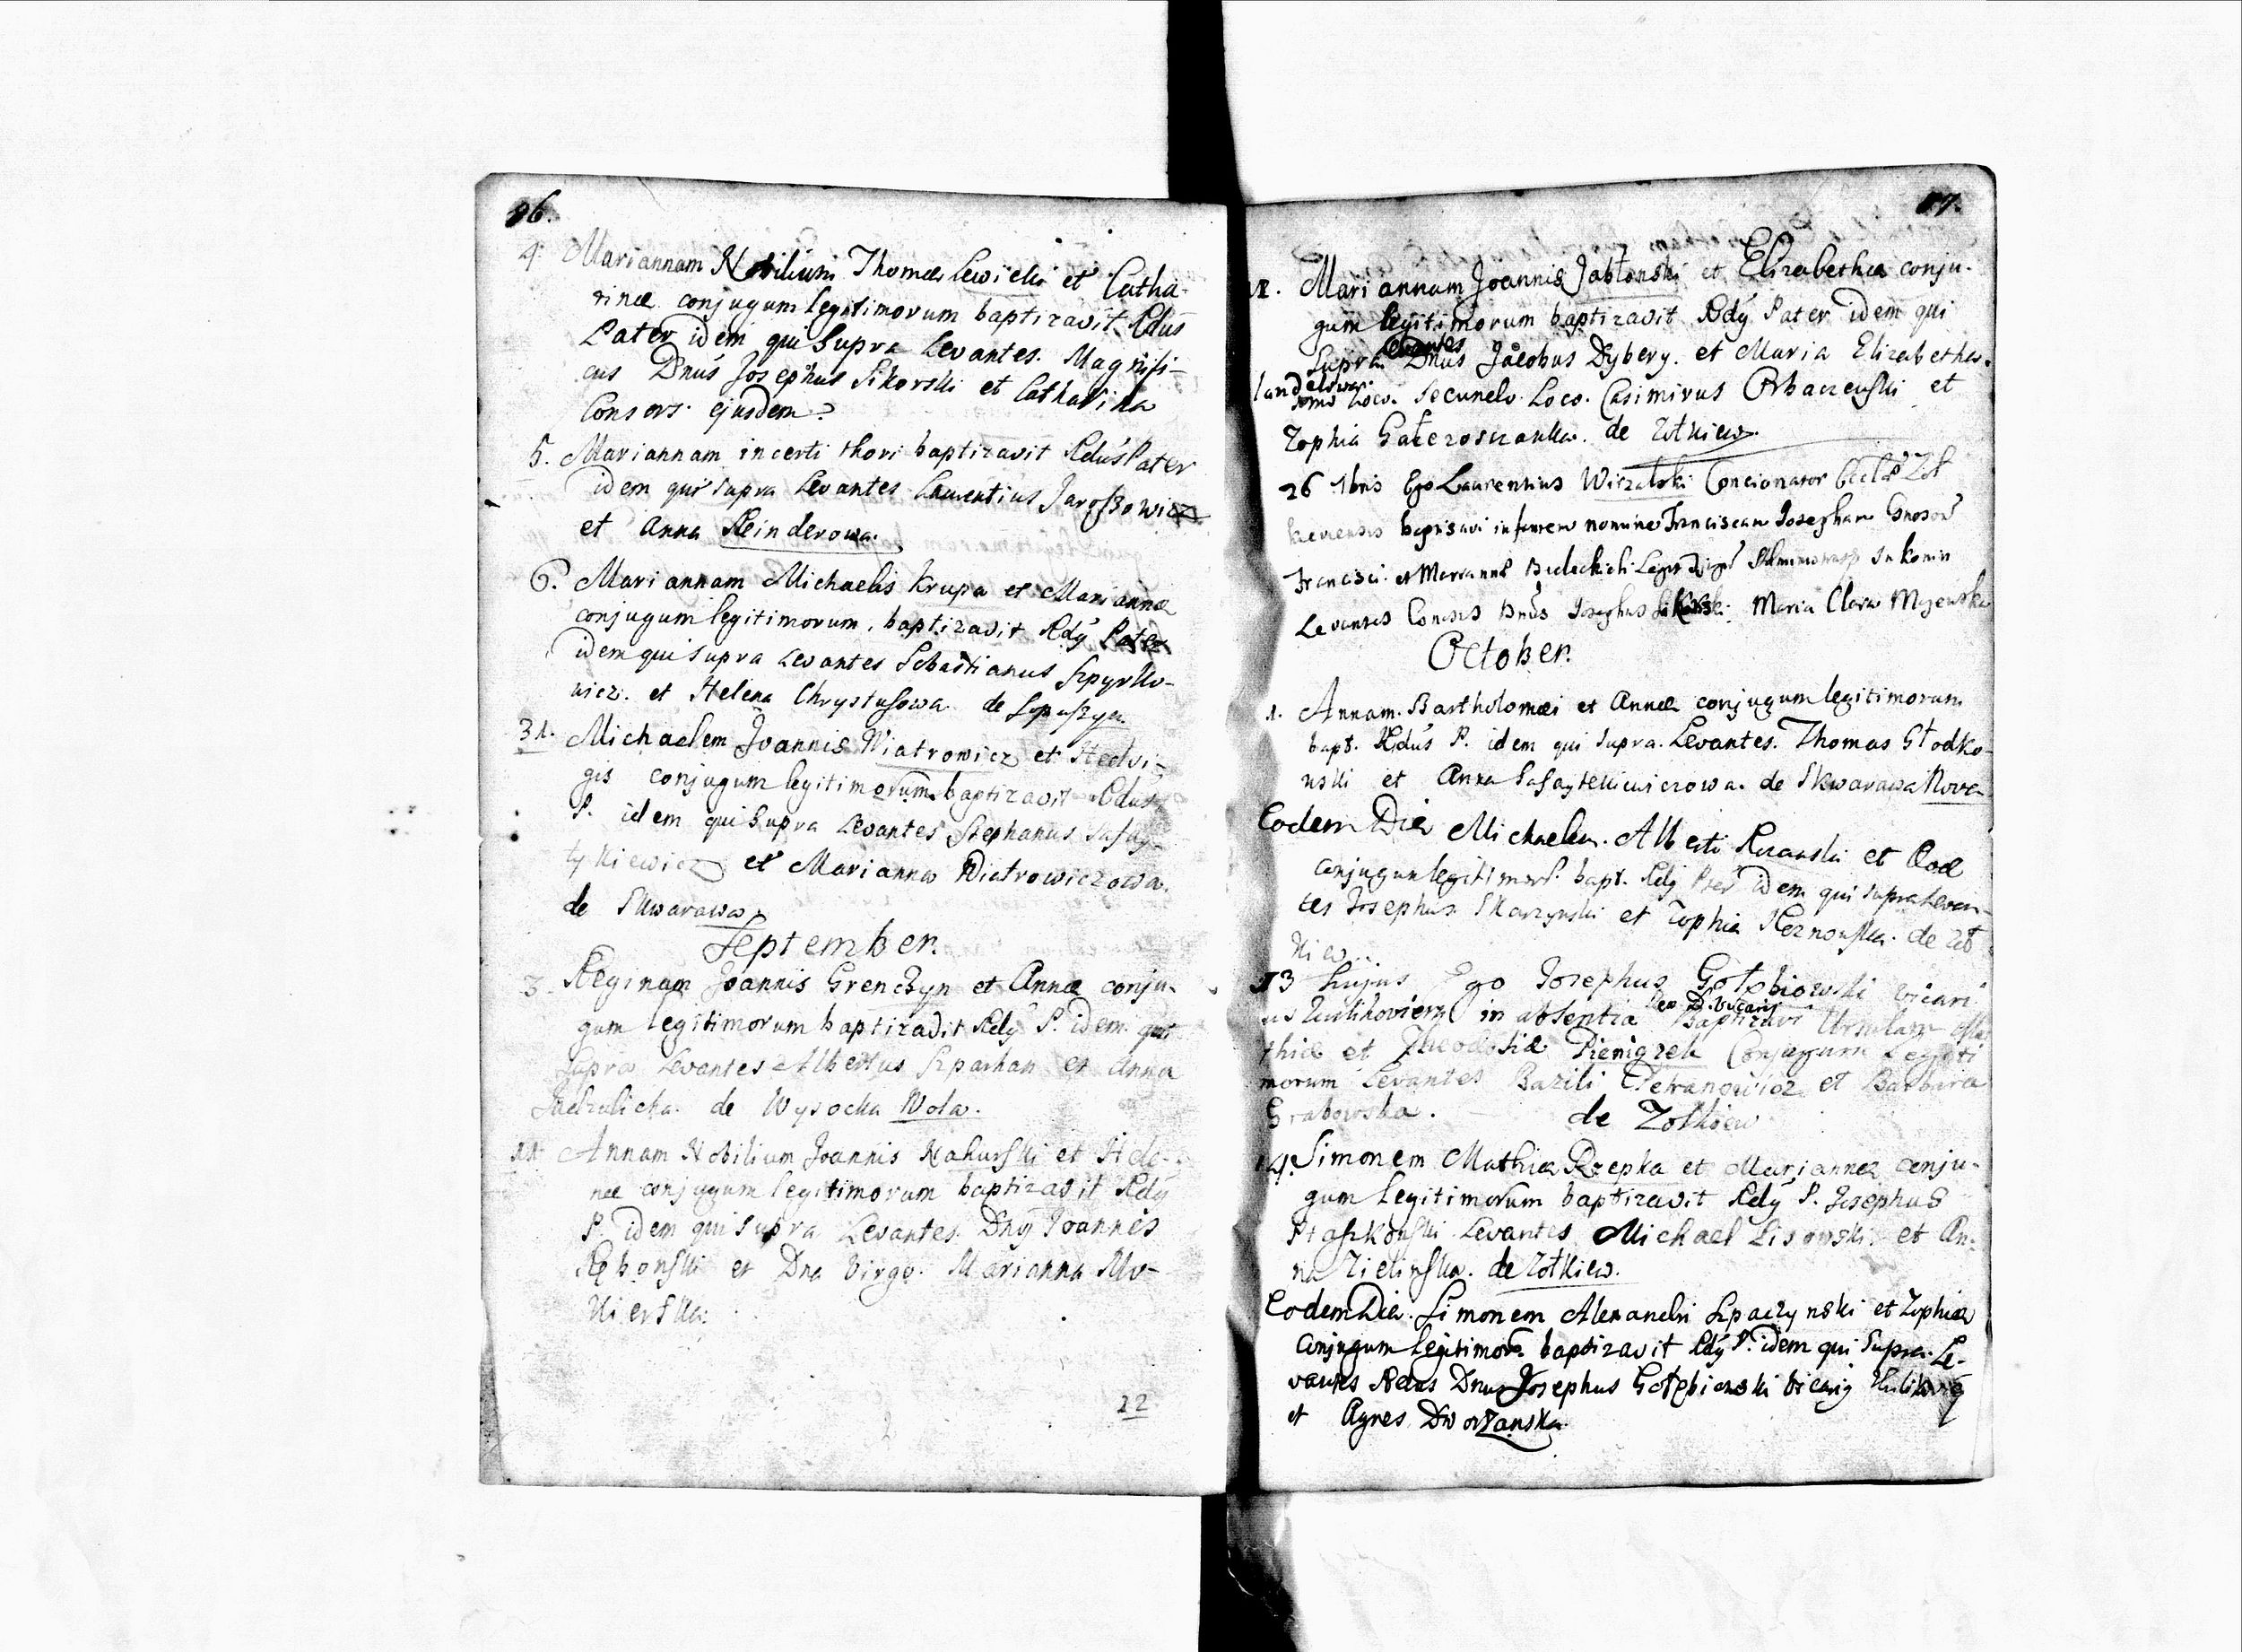 96.
4. Mariannam Nobilium Thomæ Lewicki et Catha-
rinæ conjugum legitimorum baptizavit Rdus
Pater idem qui Supra Levantes. Magnifi-
cus Dnus Josephus Sikorski et Catharina
Consors ejusdem
5. Mariannam incerti thori baptizavit Rdus Pater
idem qui supra Levantes Laurentius Jaroszowicz
et Anna Reinderowa.
6. Mariannam Michaelis Krupa et Mariannæ
conjugum legitimorum, baptizavit Rdy Pater
idem qui supra Levantes Sebastianus Szpyrko-
wicz. et Helena Chrystusowa de
31. Michaelem Joannis Wiatrowicz et Hedvi-
gis conjugum legitimorum baptizavit Rdus
P. idem qui Supra Levantes Stephanus Safay-
tykiewicz et Marianna Wiatrowiczowa.
de Skwarawa.
September.
3. Reginam Joannis Grenczyn et Annæ conju-
gum legitimorum baptizavit Rdy P. idem qui
Supra Levantes Albertus Szparhan et Anna
de Wysocka Wola.
11. Annam Nobilium Joannis Nahurski et Hele-
næ conjugum legitimorum baptizavit Rdy
P. idem qui supra Levantes. Dny Joannes
et Dna Virgo. Marianna Mo-
kierska.
22
97.
12. Mariannam Joannis Jabłonski et Elizabethæ conju-
gum legitimorum baptizavit Rdy Pater idem qui
Supra. Levantes Dnus Jacobus Dybery. et Maria Elizabetha
Loco. Secundo Loco. Casimirus et
Zophia de Żołkiew.
26 7bris Ego Laurentius Concionator
baptisavi infantem nomine Franciscam Josepham
Francisci et Mariannæ
Levantes Dnus Josephus Sikorski. Maria Clara Majewska
October.
1. Annam. Bartholomæi et Annæ conjugum legitimorum
bapt. Rdus P. idem qui supra. Levantes. Thomas Słodko-
wski et Anna Safaytekiewiczowa. de Skwarawa Nova
Eodem Die Michaelem. Alberti et
conjugum bapt. Rdy idem qui supra Levan-
tes Josephus Skarzynski et Zophia de Żoł-
kiew.
13 hujus Ego Josephus Gołębiowski Vicari-
us in absentia Baptizavi Ursulam Ma-
thiæ et Theodosiæ Pieniązek Conjugum Legiti
morum Levantes Bazili Petranowicz et Barbara
Grabowska. de Zolkiew
14. Simonem Mathiæ Rzepka et Mariannæ conju-
gum legitimorum baptizavit Rdy P. Josephus
Ptaszkowski Levantes Michael Lisowski. et An-
na Zielinska. de Żołkiew.
Eodem Die. Simonem Alexandri Szpaczynski et Zophiæ
Conjugum Legitimor. baptizavit Rdy P. idem qui Supra. Le-
vantes Rdus Dnus Josephus Gołębiowski
et Agnes Dworzanska.